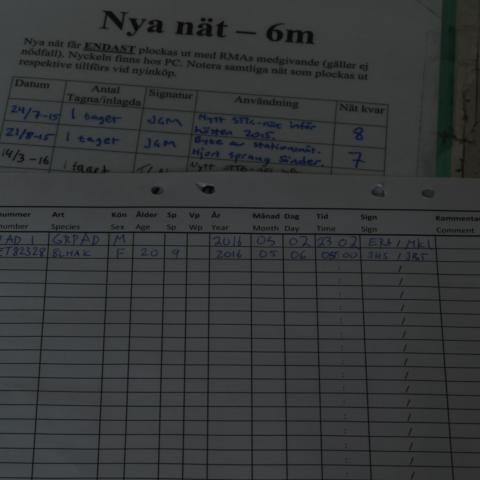 Nya nät – 6m
Nya nät får ENDAST plockas ut med RMAs medgivande (gäller ej
nödfall). Nyckeln finns hos PC. Notera samtliga nät som plockas ut
respektive tillförs vid nyinköp.
Datum Antal Tagna/inlagda Signatur Användning Nät kvar
24/7-15 1 taget JGM Nytt STK-nät inför
hösten 2015. 8
21/8-15 1 taget JGM Byte av stationsnät.
Hjort sprang sönder. 7
14/3-16 1 taget Nytt
nummer Art Kön Ålder Sp Vp År Månad Dag Tid Sign Kommentar
number Species Sex Age Sp Wp Year Month Day Time Sign Comment
PAD 1 GRPAD M 2016 05 02 23:02 / MKL
ET82328 BLHAK F 20 9 2016 05 06 05:00 JHS / JBS